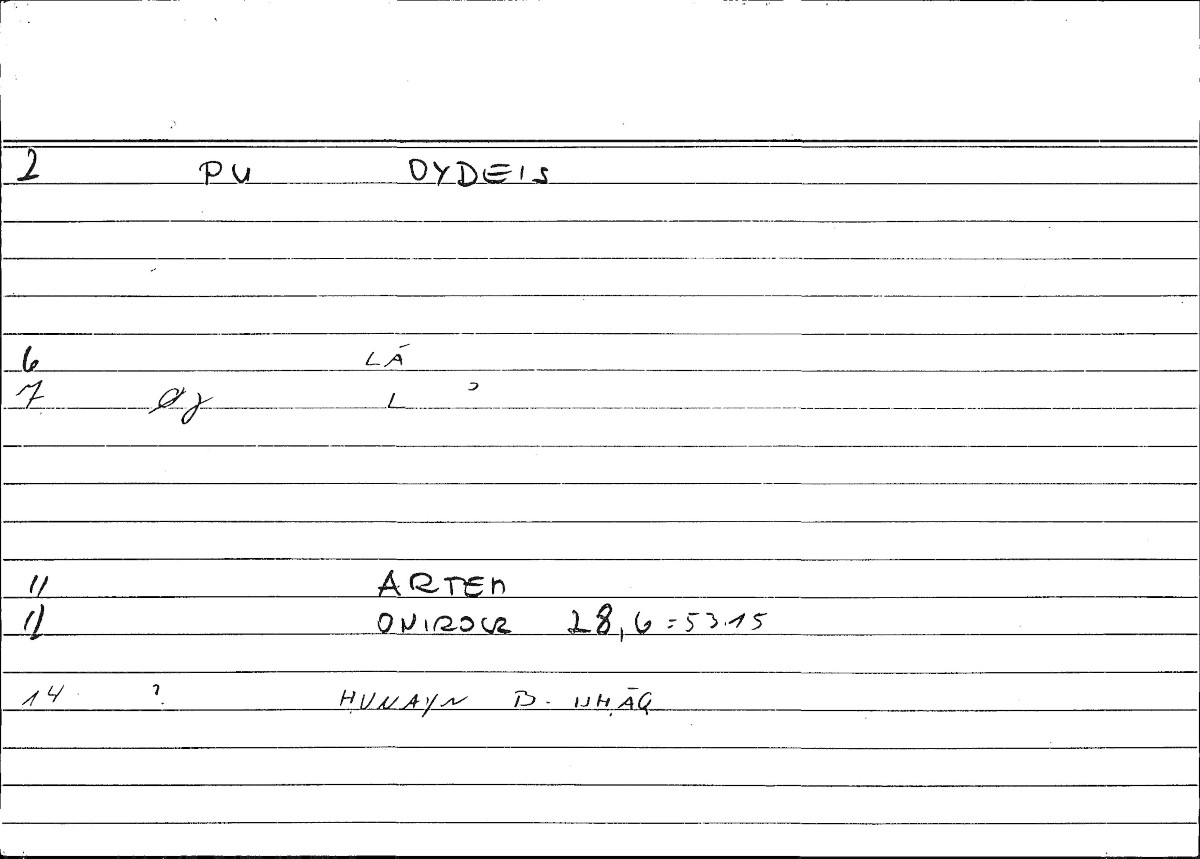 2 PU OYDEIS
6 LĀ
7 L ʾ
11 ARTEM
12 ONIROCR 28,6=53.15
14 ? ḤUNAYN B. ISḤĀQ